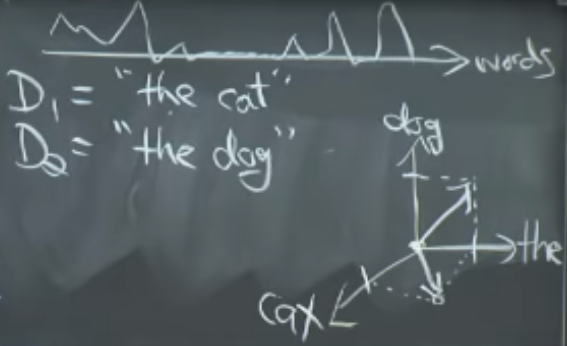 words
D₁ = "the cat"
D₂ = "the dog"
dog
the
cat